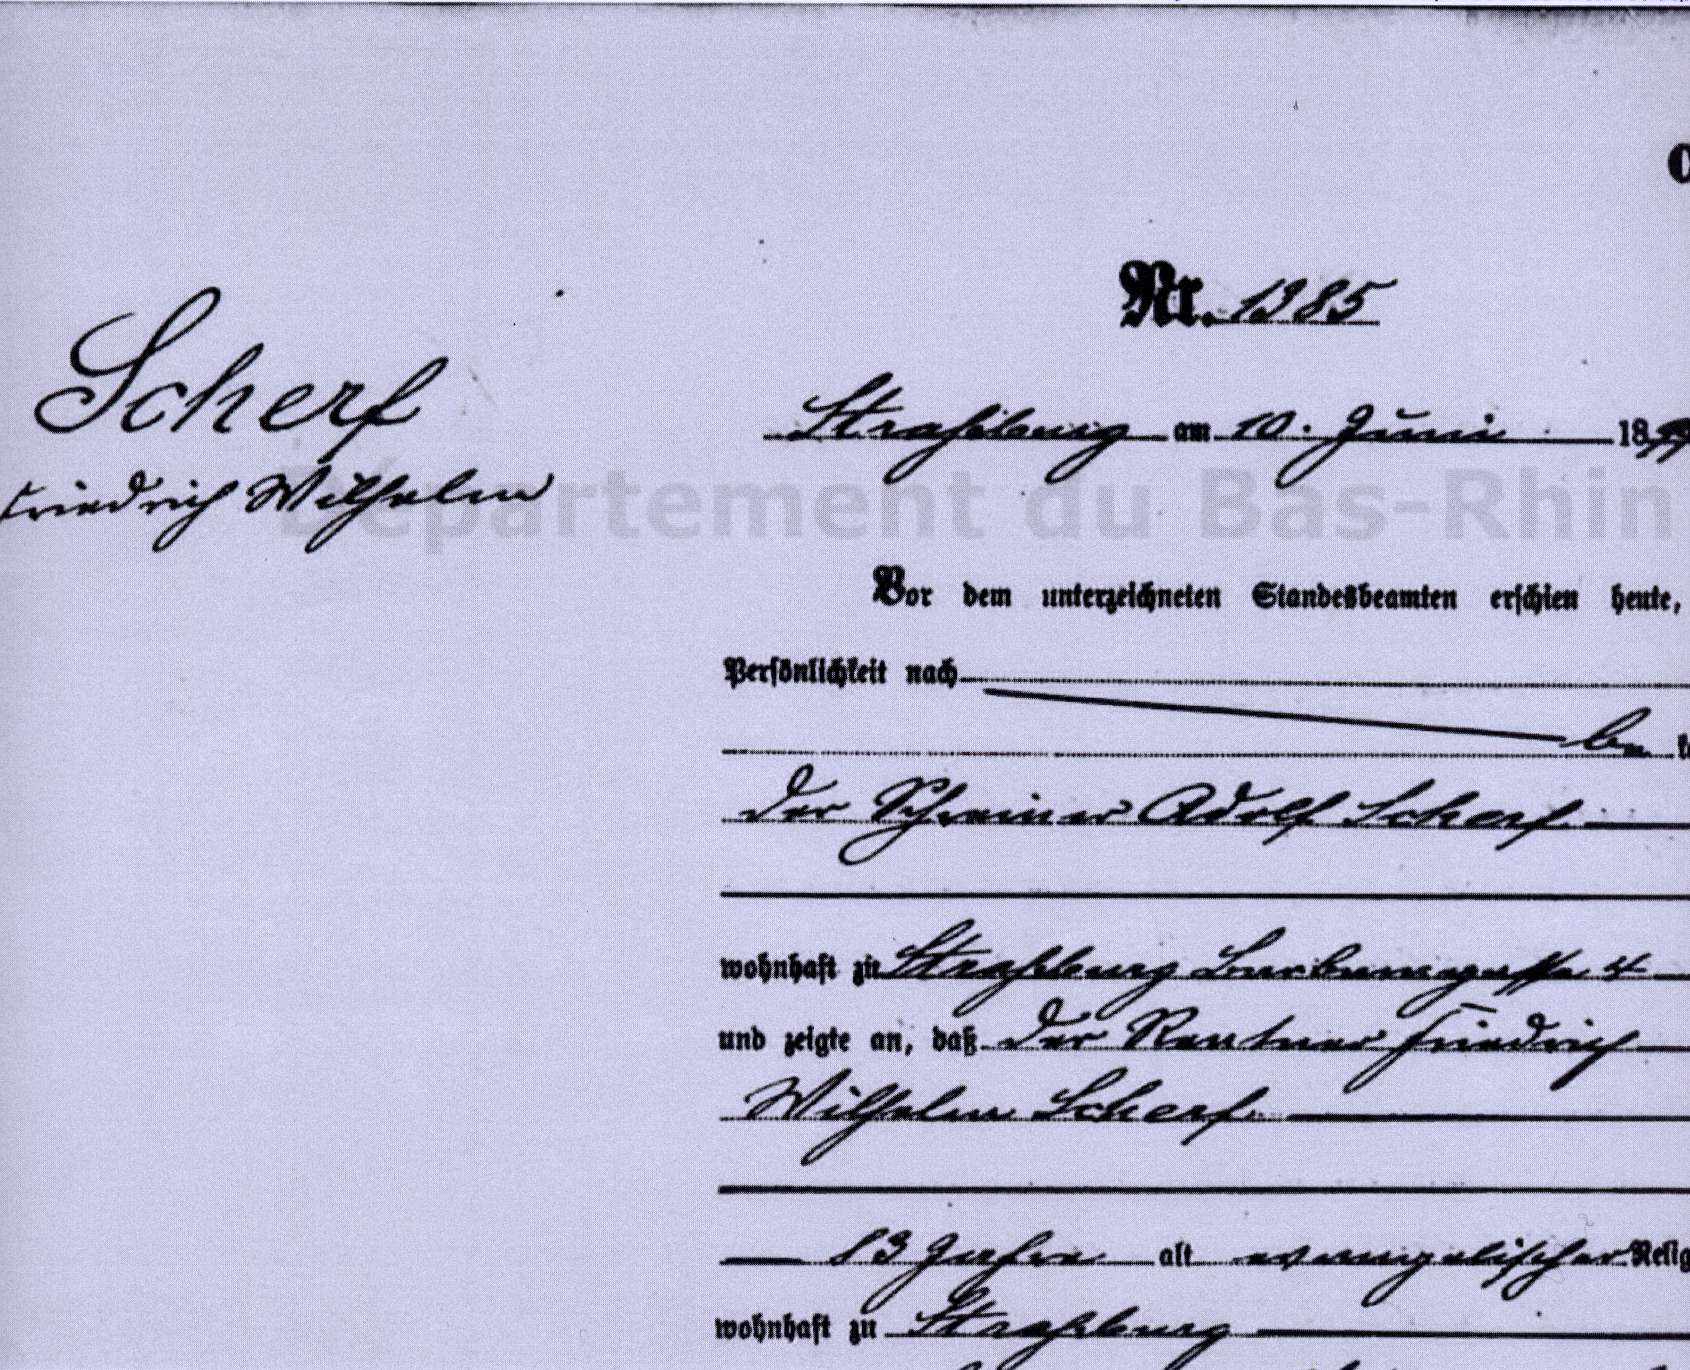 Nr. 1385
Scherf
Friedrich Wilhelm
Straßburg am 10. Juni 1899
Département du Bas-Rhin
Vor dem unterzeichneten Standesbeamten erschien heute,
Persönlichkeit nach
be k
der Schreiner Adolf Scherf
wohnhaft zu Straßburg 4
und zeigte an, daß der Rentner Friedrich
Wilhelm Scherf
83 Jahre alt evangelischer Relig
wohnhaft zu Straßburg